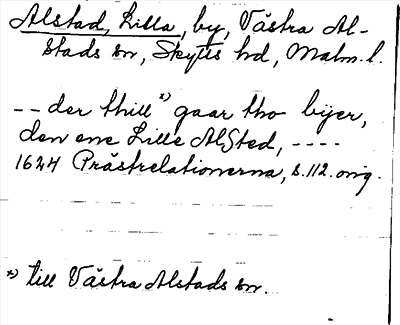 Alstad, Lilla, by, Västra Al-
stads sn, Skytts hd, Malm. l.
-- der thill *) gaar tho bÿer,
den ene Lille Alsted, ----
1624 Prästrelationerna, s. 112. orig.
*) till Västra Alstads sn.